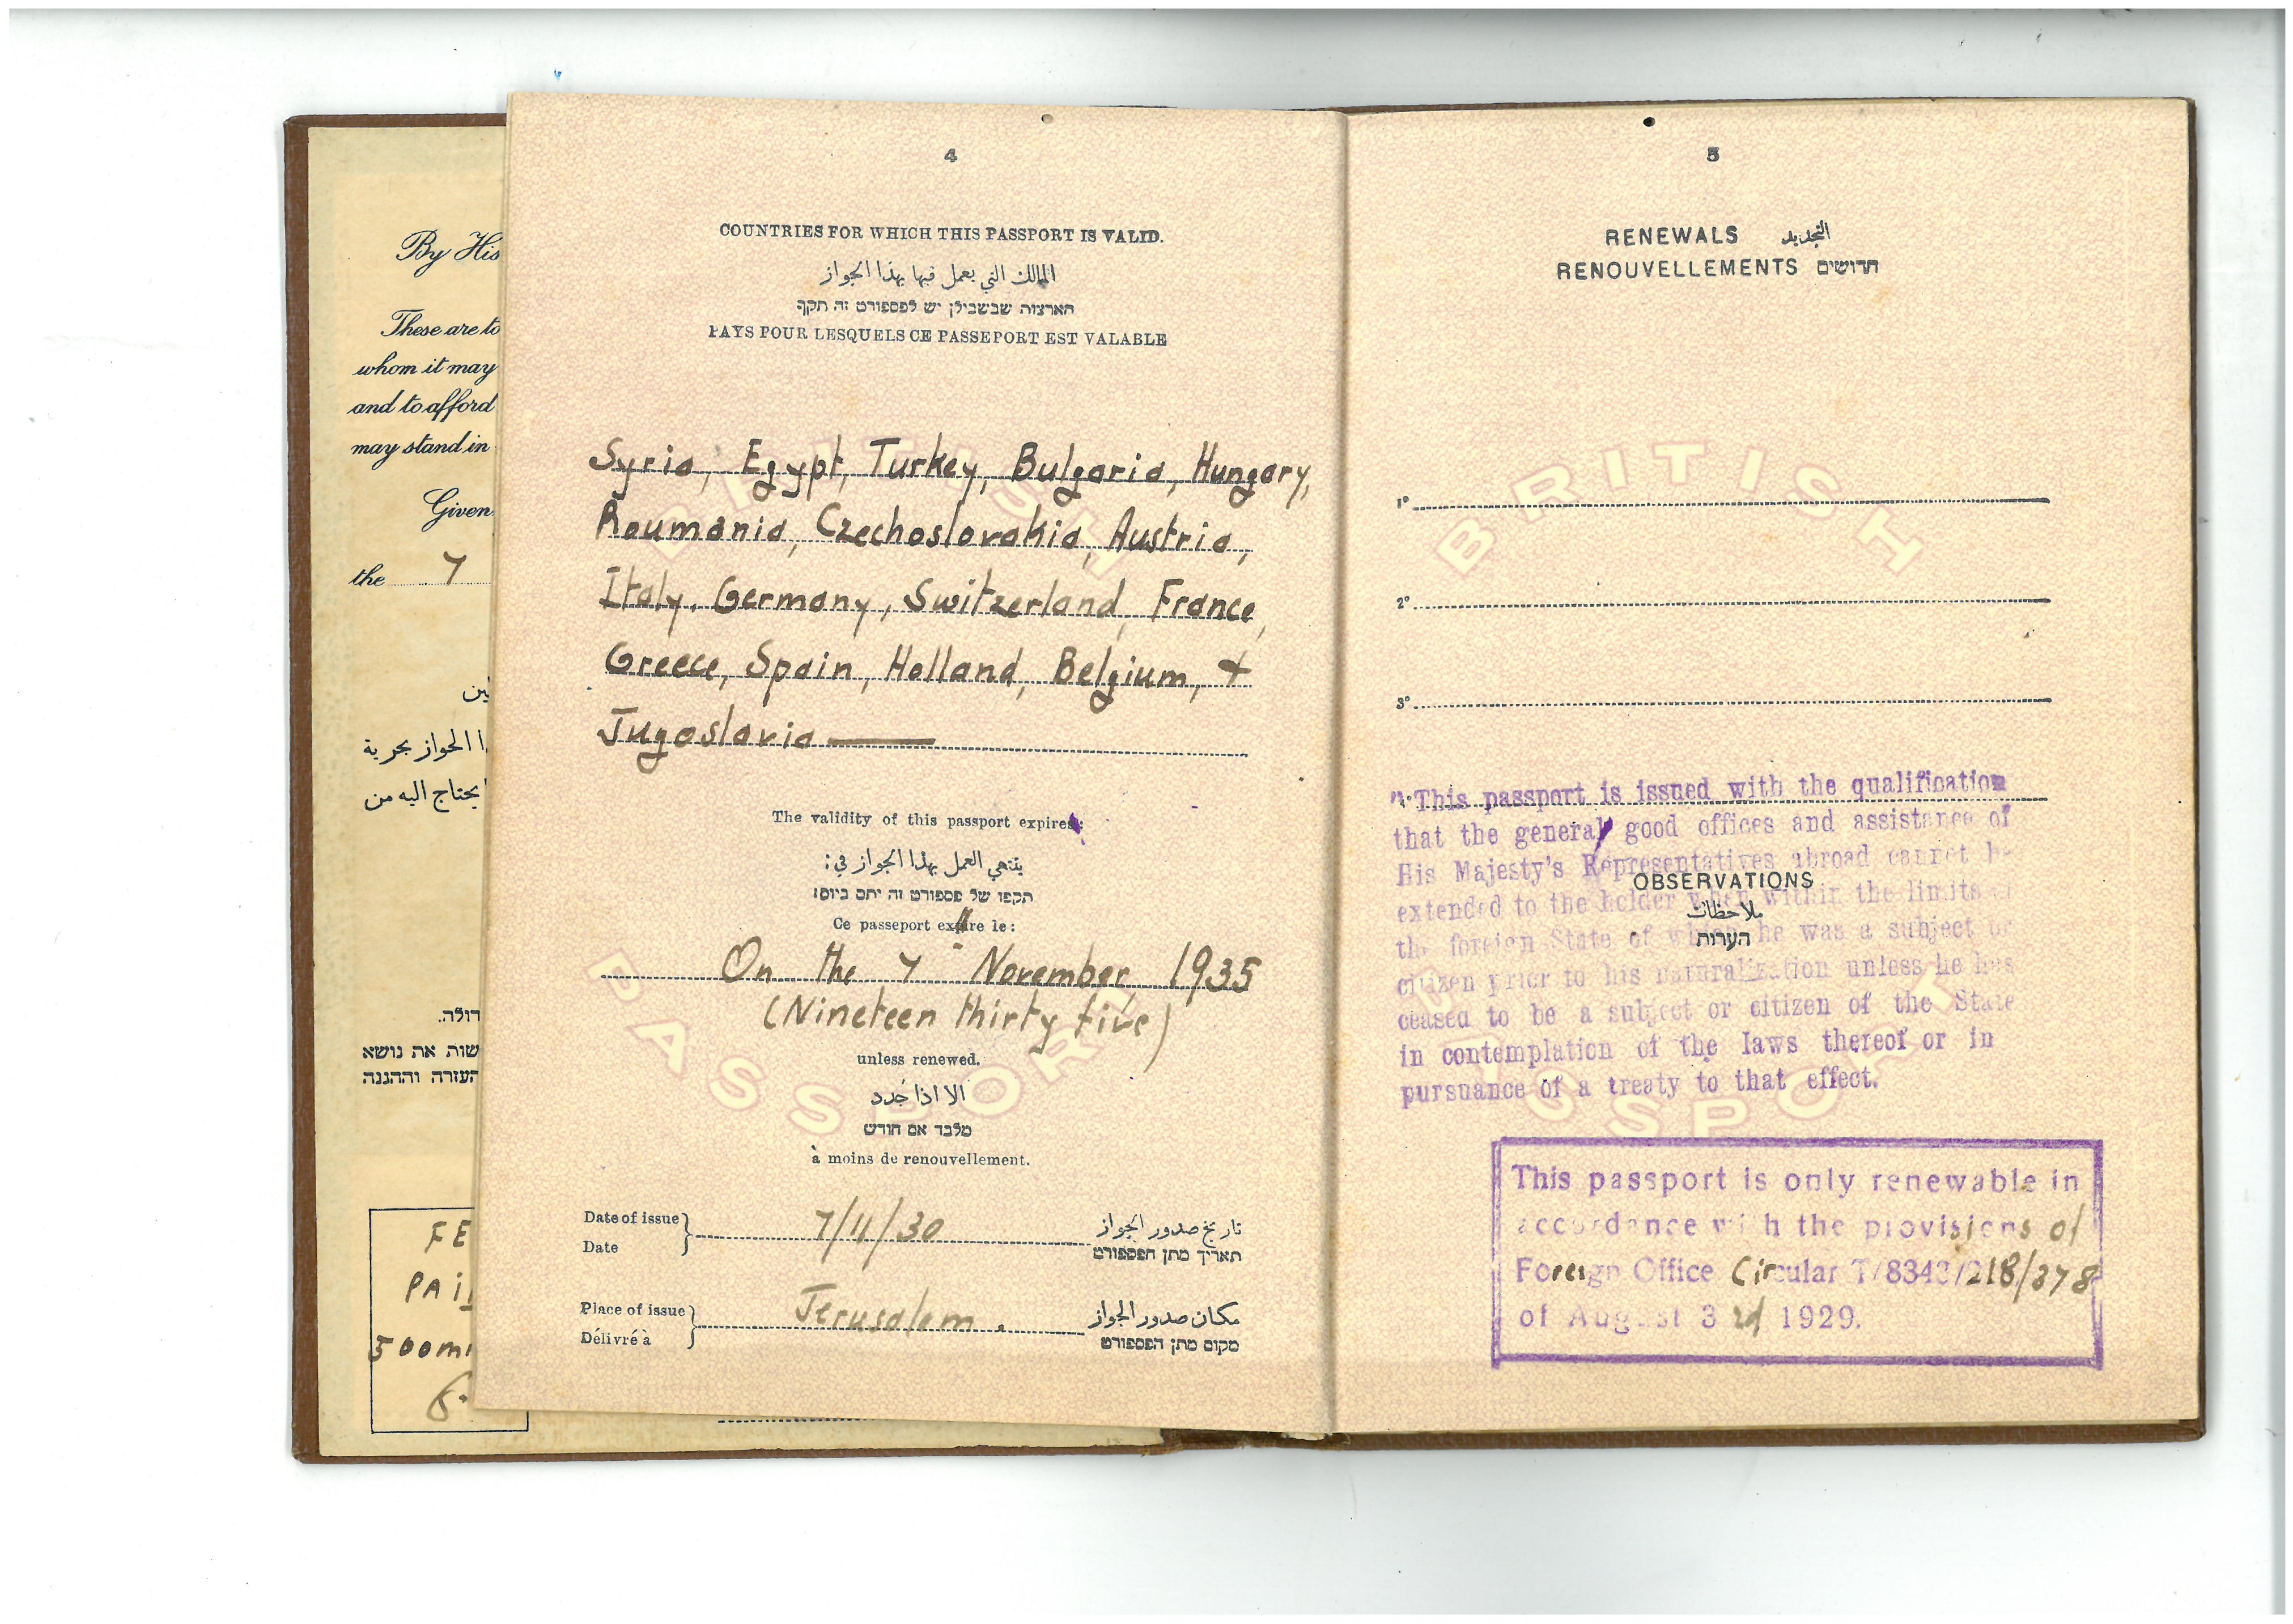 By His
These are to
whom it may
and to afford
may stand in
Given
the 7
ين
ا الجواز بحرية
يحتاج اليه من
דולה.
שות את נושא
העזרה וההגנה
FE
PAI
500mi
4
COUNTRIES FOR WHICH THIS PASSPORT IS VALID.
الممالك التي يعمل فيها بهذا الجواز
הארצות שבשבילן יש לפספורט זה תקף
PAYS POUR LESQUELS CE PASSEPORT EST VALABLE
Syria, Egypt, Turkey, Bulgaria, Hungary,
Roumania, Czechoslovakia, Austria,
Italy, Germany, Switzerland, France,
Greece, Spain, Holland, Belgium, +
Jugoslavia
The validity of this passport expires:
ينتهي العمل بهذا الجواز في:
תקפו של פספורט זה יתם ביום:
Ce passeport expire le:
On the 7 November 1935
(Nineteen thirty five)
unless renewed.
الا اذا جُدد
מלבד אם חודש
à moins de renouvellement.
Date of issue تاريخ صدور الجواز
7/11/30
Date תאריך מתן הפספורט
Place of issue مكان صدور الجواز
Jerusalem.
Délivré à מקום מתן הפספורט
BRITISH
PASSPORT
5
RENEWALS التجديد
RENOUVELLEMENTS חדושים
1º
2º
3º
4º
"This passport is issued with the qualification
that the general good offices and assistance of
His Majesty's Representatives abroad cannot be
OBSERVATIONS
extended to the holder when within the limits of
ملاحظات
the foreign State of which he was a subject or
הערות
citizen prior to his naturalization unless he has
ceased to be a subject or citizen of the State
in contemplation of the laws thereof or in
pursuance of a treaty to that effect.
BRITISH
PASSPORT
This passport is only renewable in
accordance with the provisions of
Foreign Office Circular T/8343/218/378
of August 3rd 1929.